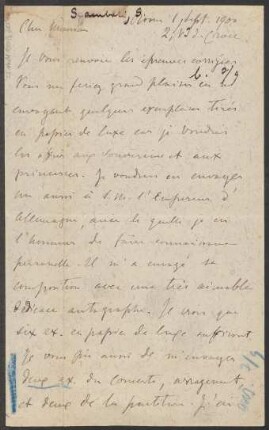 Sgambati, S.
Cher Monsieur Rome 1 Sept. 1900
2, Via d. Croce
Je vous renvoie les épreuves corrigées
b. 3/9
Vous me feriez grand plaisir en m'
envoyant quelques exemplaires tirés
en papier de luxe car je voudrais
les offrir aux Souverains et aux
princesses. Je voudrais en envoyer
un aussi à S. M. l'Empereur d'
Allemagne, avec le quel je eu
l'honneur de faire connaissance
personelle. Il m'a envoyé sa
composition avec une très aimable
dédicace autographe. Je crois que
six ex. en papier de luxe suffiront
Je vous prie aussi de m'envoyer
deux ex. du concerto, arrangement
et deux de la partition. J'ai